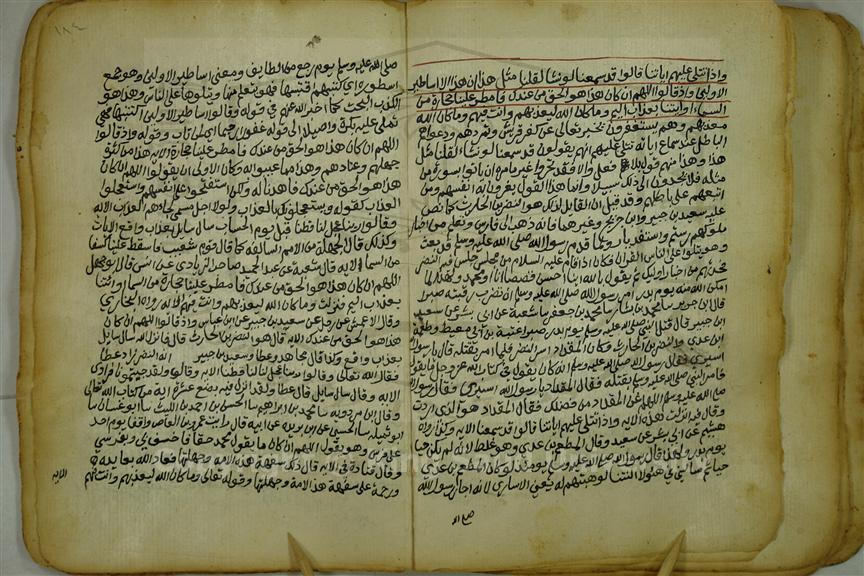 واذا تتلى عليهم اياتنا قالوا قد سمعنا لو نشا لقلنا مثل هذا ان هذا الا اساطير
الاولين واذ قالوا اللهم ان كان هذا هو الحق من عندك فامطر علينا حجارة من
السماء او ائتنا بعذاب اليم وما كان الله ليعذبهم وانت فيهم وما كان الله
معذبهم وهم يستغفرون يخبر تعالى عن كفر قريش وتمردهم ودعواهم
الباطل عند سماع اياته تتلى عليهم انهم يقولون قد سمعنا لو نشا لقلنا مثل
هذا وهذا منهم قول بلا فعل والا فقد تحدوا غير مامرة ان ياتوا بسورة من
مثله فلا يجدون الى ذلك سبيلا وانما هذا القول يغرون به انفسهم ومن
اتبعهم على باطلهم وقد قيل ان القايل لذلك هو النضر بن الحارث كما نص
عليه سعيد بن جبير وابن جريج وغيرهما فانه ذهب الى فارس وتعلم من اخبار
ملوكهم رستم واسفنديار ولما قدم رسول الله صلى الله عليه وسلم قد بعث
وهو يتلو على الناس القران فكان اذا قام عليه السلام من مجلس جلس فيه النضر
فحدثهم من اخبار اوليك ثم يقول بالله اينا احسن قصصا انا او محمد ولهذا لما
امكن الله منه يوم بدر امر رسول الله صلى الله عليه وسلم ان تضرب رقبته صبرا
قال ابن جرير سا محمد بن بشار سا محمد بن جعفر سا شعبة عن ابى بشر عن سعيد
ابن جبير قال قتل النبي صلى الله عليه وسلم يوم بدر صبرا عقبة بن ابي معيط وطعيمة
ابن عدي والنضر بن الحارث وكان المقداد اسر النضر فلما امر بقتله قال يا رسول الله
اسيري فقال رسول الله صلى الله عليه وسلم انه كان يقول في كتاب الله عز وجل ما يقول
فامر النبي صلى الله عليه وسلم بقتله فقال المقداد يا رسول الله اسيري فقال رسول الله
صلى الله عليه وسلم اللهم اغن المقداد من فضلك فقال المقداد هو الذي اردت
وقال فيه انزلت هذه الاية واذا تتلى عليهم اياتنا قالوا قد سمعنا الاية
هشيم عن ابى بشر عن سعيد وقال المطعم بن عدي وهو غلط لانه لم يكن حيا
يوم بدر ولهذا قال رسول الله صلى الله عليه وسلم يومئذ لو كان المطعم بن عدي
حيا ثم سالني في هؤلا النتنا لوهبتهم له يعني الاسارى لانه اجار رسول الله
صلى الله
١٨٤
صلى الله عليه وسلم يوم رجع من الطايف ومعنى اساطير الاولين وهو جمع
اسطورة اي كتبهم قتبسها فهو يتعلم منها ويتلوها على الناس وهذا هو
الكذب البحت كما اخبر الله عنهم في قوله وقالوا اساطير الاولين اكتتبها فهي
تملى عليه بكرة واصيلا الى قوله غفورا رحيما وقوله واذ قالوا
اللهم ان كان هذا هو الحق من عندك فامطر علينا حجارة الاية هذا من كثرة
جهلهم وعنادهم وهذا مما عيبوا به وكان الاولى ان يقولوا اللهم ان كان
هذا هو الحق من عندك فاهدنا له ولكن استفتحوا على انفسهم واستعجلوا
العذاب كقوله ويستعجلونك بالعذاب ولولا اجل مسمى لجاءهم العذاب الاية
وقالوا ربنا عجل لنا قطنا قبل يوم الحساب سال سايل بعذاب واقع الايات
وكذلك قال الجهلة من الامم السالفة كما قال قوم شعيب فاسقط علينا كسفا
من السما الاية قال شعبة عن عبد الحميد صاحب الزيادي عن انس قال ابو جهل
اللهم ان كان هذا هو الحق من عندك فامطر علينا حجارة من السما او ائتنا
بعذاب اليم فنزلت وما كان الله ليعذبهم وانت فيهم الاية رواه البخاري
وقال الاعمش عن رجل عن سعيد بن جبير عن ابن عباس واذ قالوا اللهم ان كان
هذا هو الحق من عندك الاية قال هو النضر بن الحارث قال فانزل الله سال سايل
بعذاب واقع وكذا قال مجاهد وعطا وسعيد بن جبير انه النضر زاد عطا
فقال الله تعالى وقالوا ربنا عجل لنا قطنا الاية وقال ولقد جيتمونا فرادى
الاية وقال سال سايل قال عطا ولقد انزل فيه بضع عشرة اية من كتاب الله تعالى
وقال ابن مردويه سا محمد بن ابراهيم سا الحسن بن احمد بن الليث سا ابو غسان سا
ابو تميلة سا الحسين عن ابن بريدة عن ابيه قال رايت عمرو بن العاص واقفا يوم احد
على فرس وهو يقول اللهم ان كان ما يقول محمد حقا فاخسف بي وبفرسي
وقال قتادة في الاية قال ذلك سفهة هذه الامة وجهلتها فعاد الله بعايدته
ورحمة على سفهة هذه الامة وجهلتها وقوله تعالى وما كان الله ليعذبهم وانت فيهم
الاية